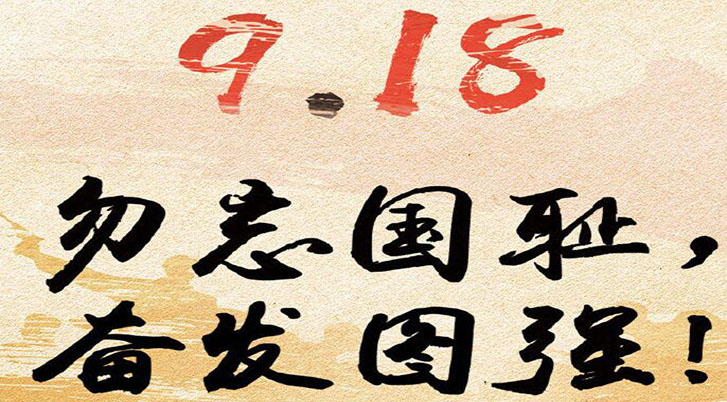 9.18
勿忘国耻,
奋发图强!